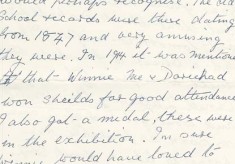 would perhaps recognise. The old
School records were there dating
from 1877 and very amusing
they were. In 1914 it was mentione
that Winnie Me &
won sheilds for good attendance
I also got a medal, these were
in the exhibition. I'm sure
would have loved to